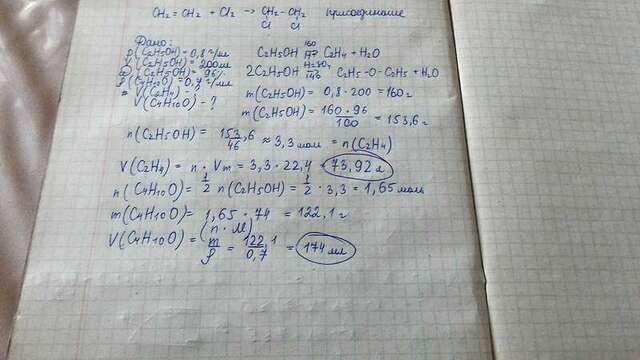 CH2=CH2 + Cl2 → CH2-CH2 присоединение
Cl Cl
Дано:
ρ(C2H5OH)=0,8 г/мл
V(C2H5OH)=200мл
ω(C2H5OH)=96%
ρ(C4H10O)=0,7 г/мл
V(C2H4) - ?
V(C4H10O) - ?
C2H5OH → C2H4 + H2O
2C2H5OH → C2H5-O-C2H5 + H2O
m(C2H5OH) = 0,8 · 200 = 160г
m(C2H5OH) = 160·96/100 = 153,6г
n(C2H5OH) = 153,6/46 ≈ 3,3 моль = n(C2H4)
V(C2H4) = n · Vm = 3,3 · 22,4 = 73,92 л
n(C4H10O) = 1/2 n(C2H5OH) = 1/2 · 3,3 = 1,65 моль
m(C4H10O) = 1,65 · 74 = 122,1 г
(n · M)
V(C4H10O) = m/ρ = 122,1/0,7 = 174 мл